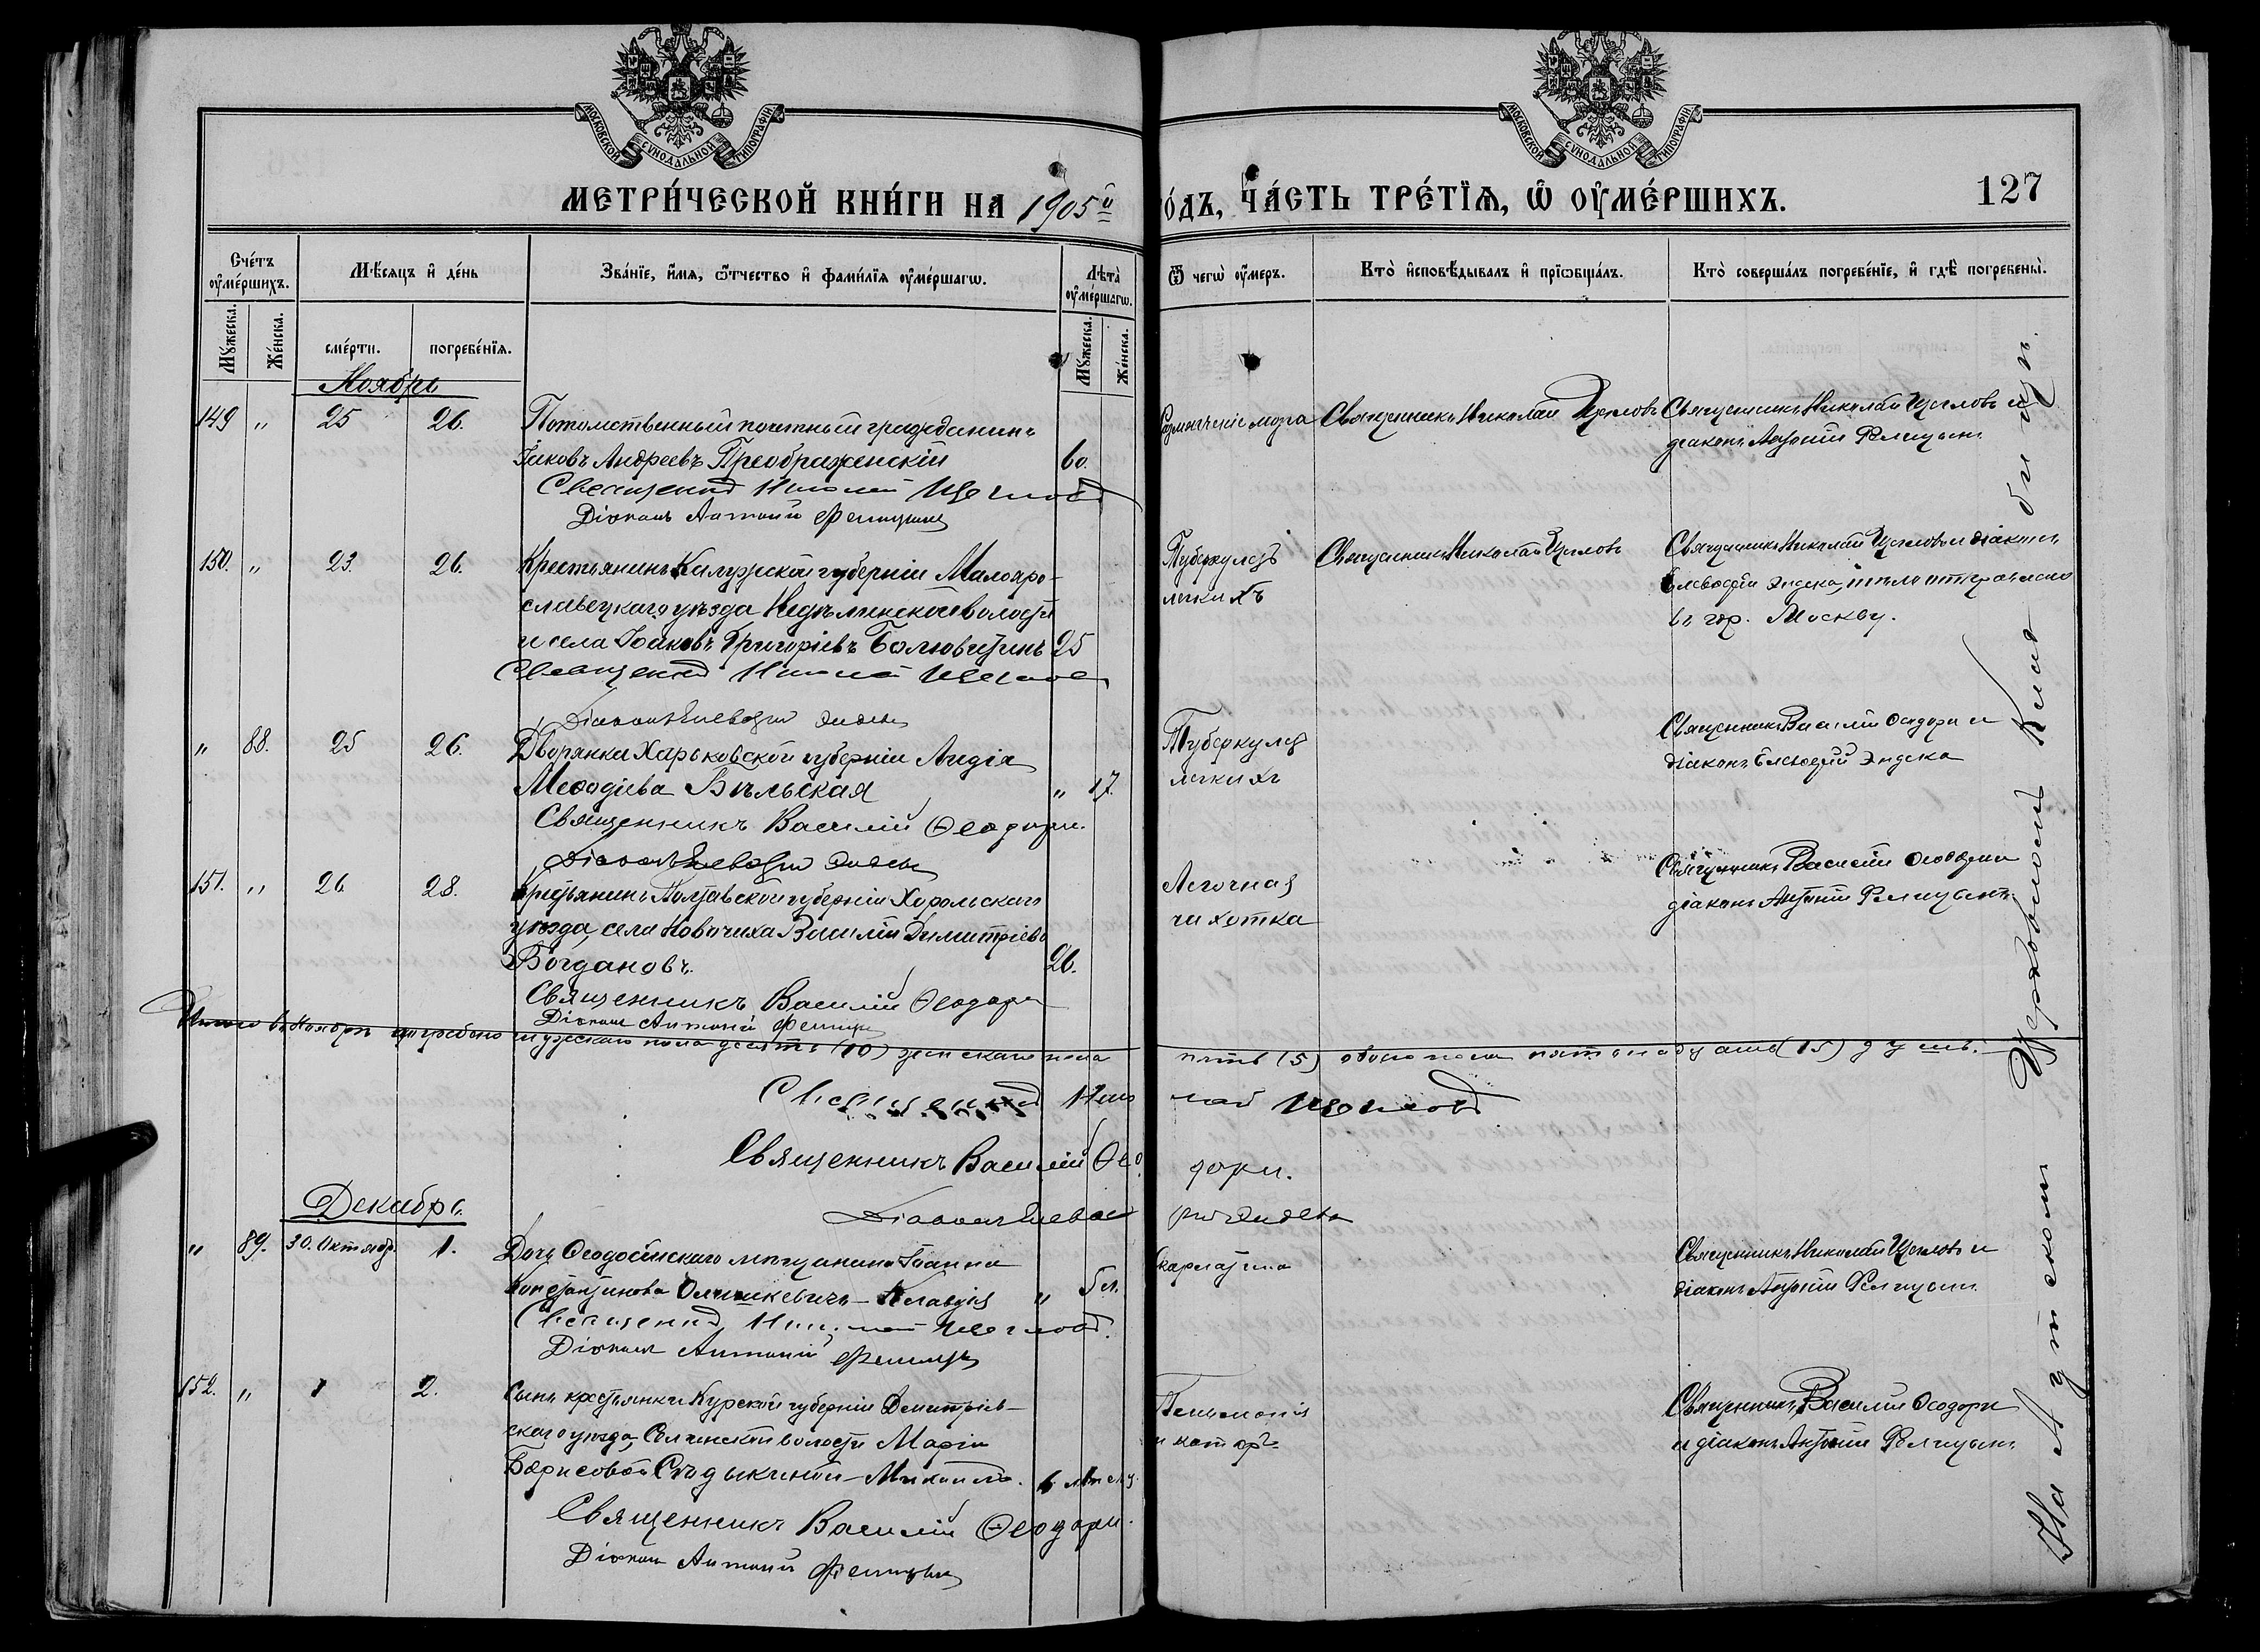 МОСКОВСКОЙ СУНОДАЛЬНОЙ ТИПОГРАФІИ
МОСКОВСКОЙ СУНОДАЛЬНОЙ ТИПОГРАФІИ
МЕТРИ́ЧЕСКОЙ КНИ́ГИ НА 1905й
О́ДЪ, ЧА́СТЬ ТРЕ́ТЇѦ, Ѿ ОУ҆МЕ́РШИХЪ.
127
Сче́тъ оу҆ме́ршихъ.
Мꙋ́жеска.
Же́нска.
Мѣ́сѧцъ и҆ де́нь
сме́рти.
погребе́нїѧ.
Зва́нїе, и҆́мѧ, ѻ҆́тчество и҆ фами́лїѧ оу҆ме́ршагѡ.
Лѣта̀ оу҆ме́ршагѡ.
Мꙋ́жеска.
Же́нска.
Ѿ чегѡ̀ оу҆́меръ.
Кто̀ и҆сповѣ́дывалъ и҆ прїѡбща́лъ.
Кто̀ соверша́лъ погребе́нїе, и҆ гдѣ̀ погребены̀.
Ноябрь
149 " 25 26.
Потомственный почетный гражданинъ
Іаковъ Андреевъ Преображенскій 60.
Священникъ Николай Щегловъ
Діаконъ Антоній
Размягченіе мозга
Священникъ Николай Щегловъ
Священникъ Николай Щегловъ и
діаконъ Антоній
150. " 23. 26.
Крестьянинъ Калужской губерніи Малояро-
славецкаго уѣзда Недѣлинской волости
и села Іаковъ Григоріевъ 25
Священникъ Николай Щегловъ
Діаконъ Елевферій Эндека
Туберкулезъ
легкихъ
Священникъ Николай Щегловъ
Священникъ Николай Щегловъ и діаконъ
Елевферій Эндека, тѣло отправлено
въ гор. Москву.
" 88. 25 26.
Дворянка Харьковской губерніи Лидія
Меѳодіева Бѣльская " 17.
Священникъ Василій Ѳеодори.
Діаконъ Елевферій Эндека
Туберкулез
легкихъ
Священникъ Василій Ѳеодори и
діаконъ Елевферій Эндека
151. " 26 28.
Крестьянинъ Полтавской губерніи Хорольскаго
уѣзда, села Ковачиха Василій Димитріевъ
Богдановъ. 26.
Священникъ Василій Ѳеодори
Діаконъ Антоній
Легочная
чахотка
Священникъ Василій Ѳеодори
діаконъ Антоній
Итого въ Ноябрѣ погребено мужескаго пола десять (10) женскаго пола
пять (5) обоего пола пятнадцать (15) душъ.
Священникъ Николай Щегловъ
Священникъ Василій Ѳеодори.
Діаконъ Елевферій Эндека
Декабрь.
" 89. 30. Октябр. 1.
Дочь Ѳеодосійскаго мѣщанина Іоанна
Константинова Олешкевичъ – Клавдія " 5 л.
Священникъ Николай Щегловъ.
Діаконъ Антоній
Скарлатина
Священникъ Николай Щегловъ и
діаконъ Антоній
152. " 1 2.
Сынъ крестьянки Курской губерніи Дмитріев-
скаго уѣзда, волости Маріи
Борисовой – Михаилъ. 6 мѣсяц.
Священникъ Василій Ѳеодори.
Діаконъ Антоній
Пневмонія
и катарръ
Священникъ Василій Ѳеодори
и діаконъ Антоній
На Аутскомъ Церковномъ Кладбищѣ.